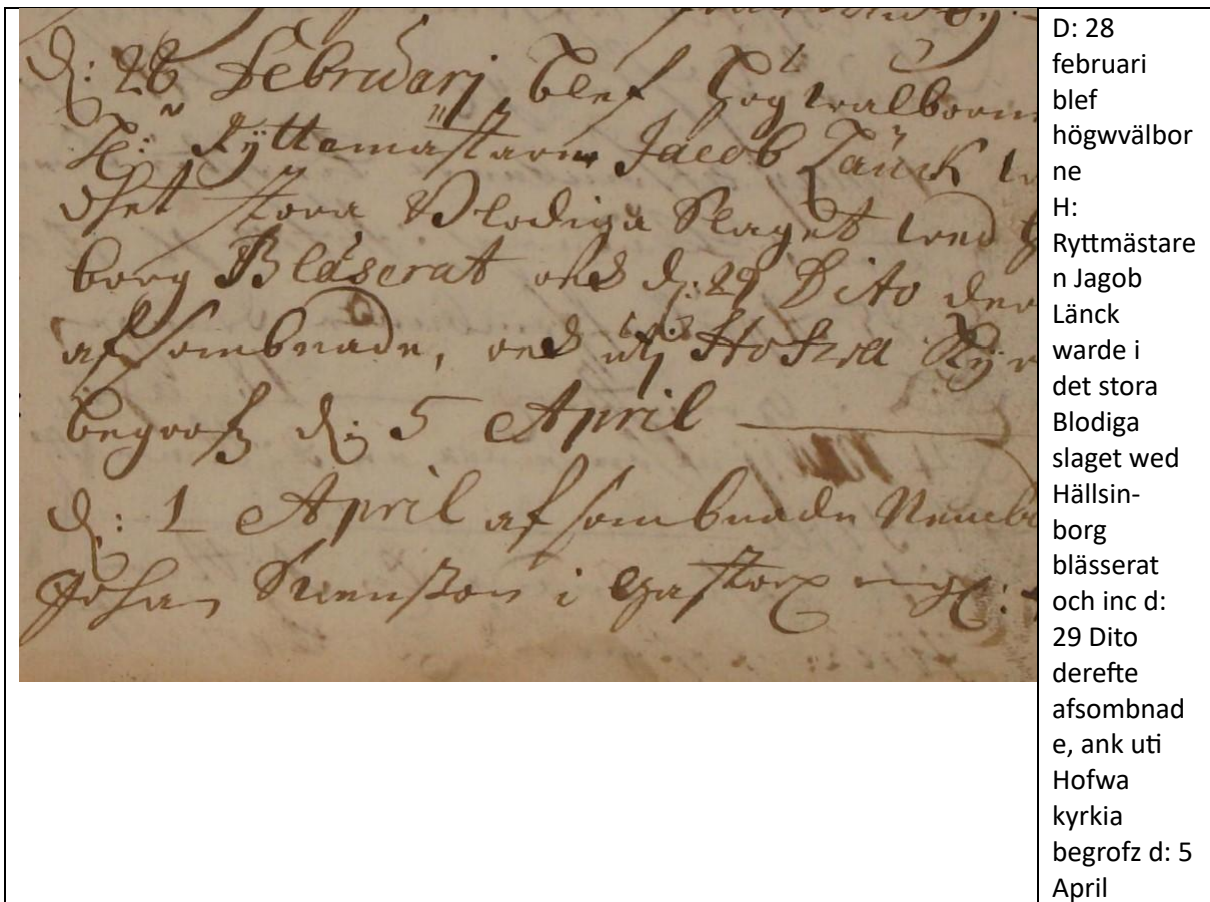 D: 28 Februarj blef Högwälborn
H: Ryttemästaren Jacob Länck
dhet stora Blodiga Slaget wed
borg Bläserat och d: 29 Dito der
afsombnade, och uti Hofwa Kyr
begrofz d: 5 April
d: 1 April afsombnade
Johan Swenßon i
D: 28
februari
blef
högwvälbor
ne
H:
Ryttmästare
n Jagob
Länck
warde i
det stora
Blodiga
slaget wed
Hällsin-
borg
blässerat
och inc d:
29 Dito
derefte
afsombnad
e, ank uti
Hofwa
kyrkia
begrofz d: 5
April